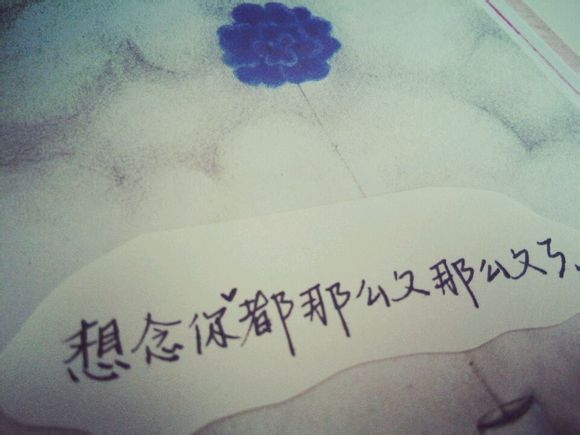 想念你♥都那么久那么久了、